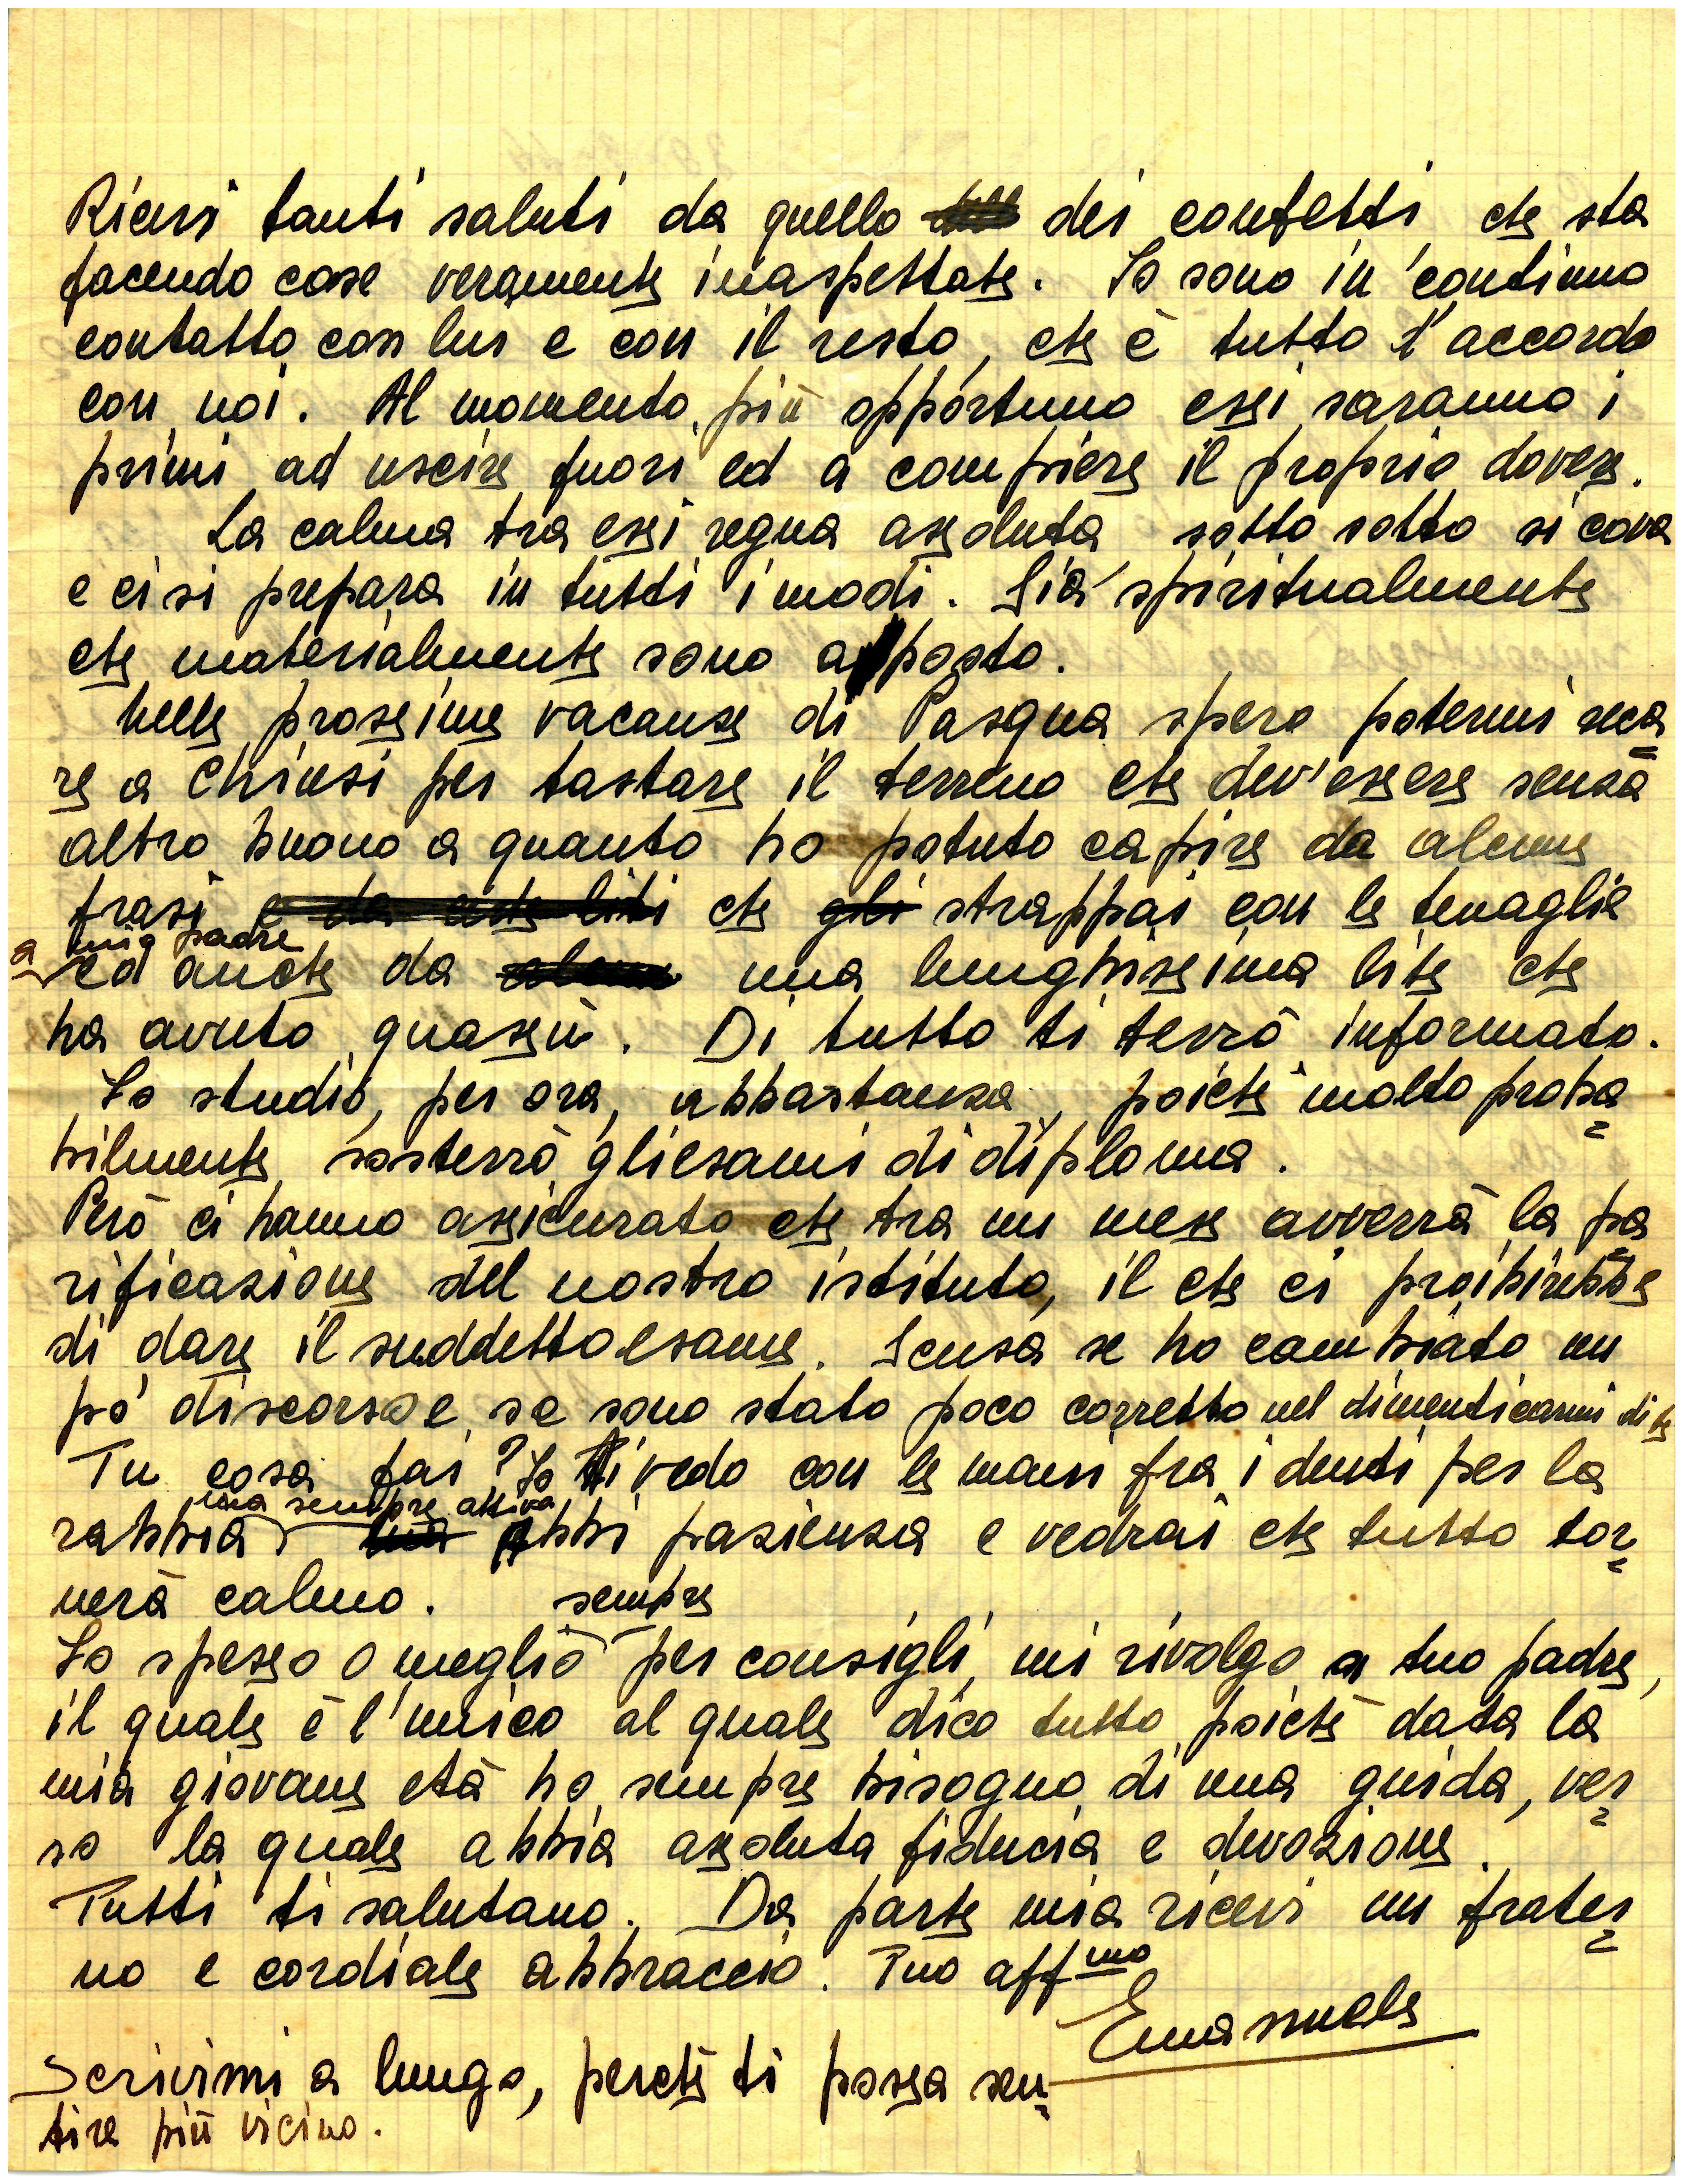 Ricevi tanti saluti da quello dei confetti che sta
facendo cose veramente inaspettate. Io sono in continuo
contatto con lui e con il resto, che è tutto d'accordo
con noi. Al momento più opportuno essi saranno i
primi ad uscire fuori ed a compiere il proprio dovere.
La calma tra essi regna assoluta sotto sotto si cova
e ci si prepara in tutti i modi. Sia spiritualmente
che materialmente sono apposto.
Nelle prossime vacanze di Pasqua spero potermi reca=
re a Chiusi per tastare il terreno che dev'essere senza
altro buono a quanto ho potuto capire da alcune
frasi e da certe liti che gli strappai con le tenaglie
a mio padre
ed anche da una lunghissima lite che
ha avuto quassù. Di tutto ti terrò informato.
Io studio, per ora, abbastanza, poichè molto proba=
bilmente sosterrò gli esami di diploma.
Però ci hanno assicurato che tra un mese avverrà la pa=
rificazione del nostro istituto, il che ci proibirebbe
di dare il suddetto esame. Scusa se ho cambiato un
po' discorso e se sono stato poco corretto nel dimenticarmi di te
Tu cosa fai? Io ti vedo con le mani fra i denti per la
ma sempre attiva
rabbia, ma Abbi pazienza e vedrai che tutto tor=
nerà calmo.
sempre
Io spesso o meglio per consigli, mi rivolgo a tuo padre,
il quale è l'unico al quale dico tutto, poichè data la
mia giovane età ho sempre bisogno di una guida, ver=
so la quale abbia assoluta fiducia e devozione.
Tutti ti salutano. Da parte mia ricevi un frater=
no e cordiale abbraccio. Tuo aff.mo
Emanuele
Scrivimi a lungo, perchè ti possa sen=
tire più vicino.